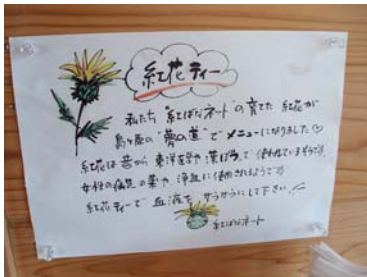 紅花ティー
私たち"紅ばなネット"の育てた 紅花が
"夢の道"で メニューになりました♡
紅花は昔から 東洋医学 漢ぽうで 使われているそうです。
女性の病気の薬や、浄血に使用されるようです
紅花ティーで 血液を サラサラにして下さい!!
紅ばなネット